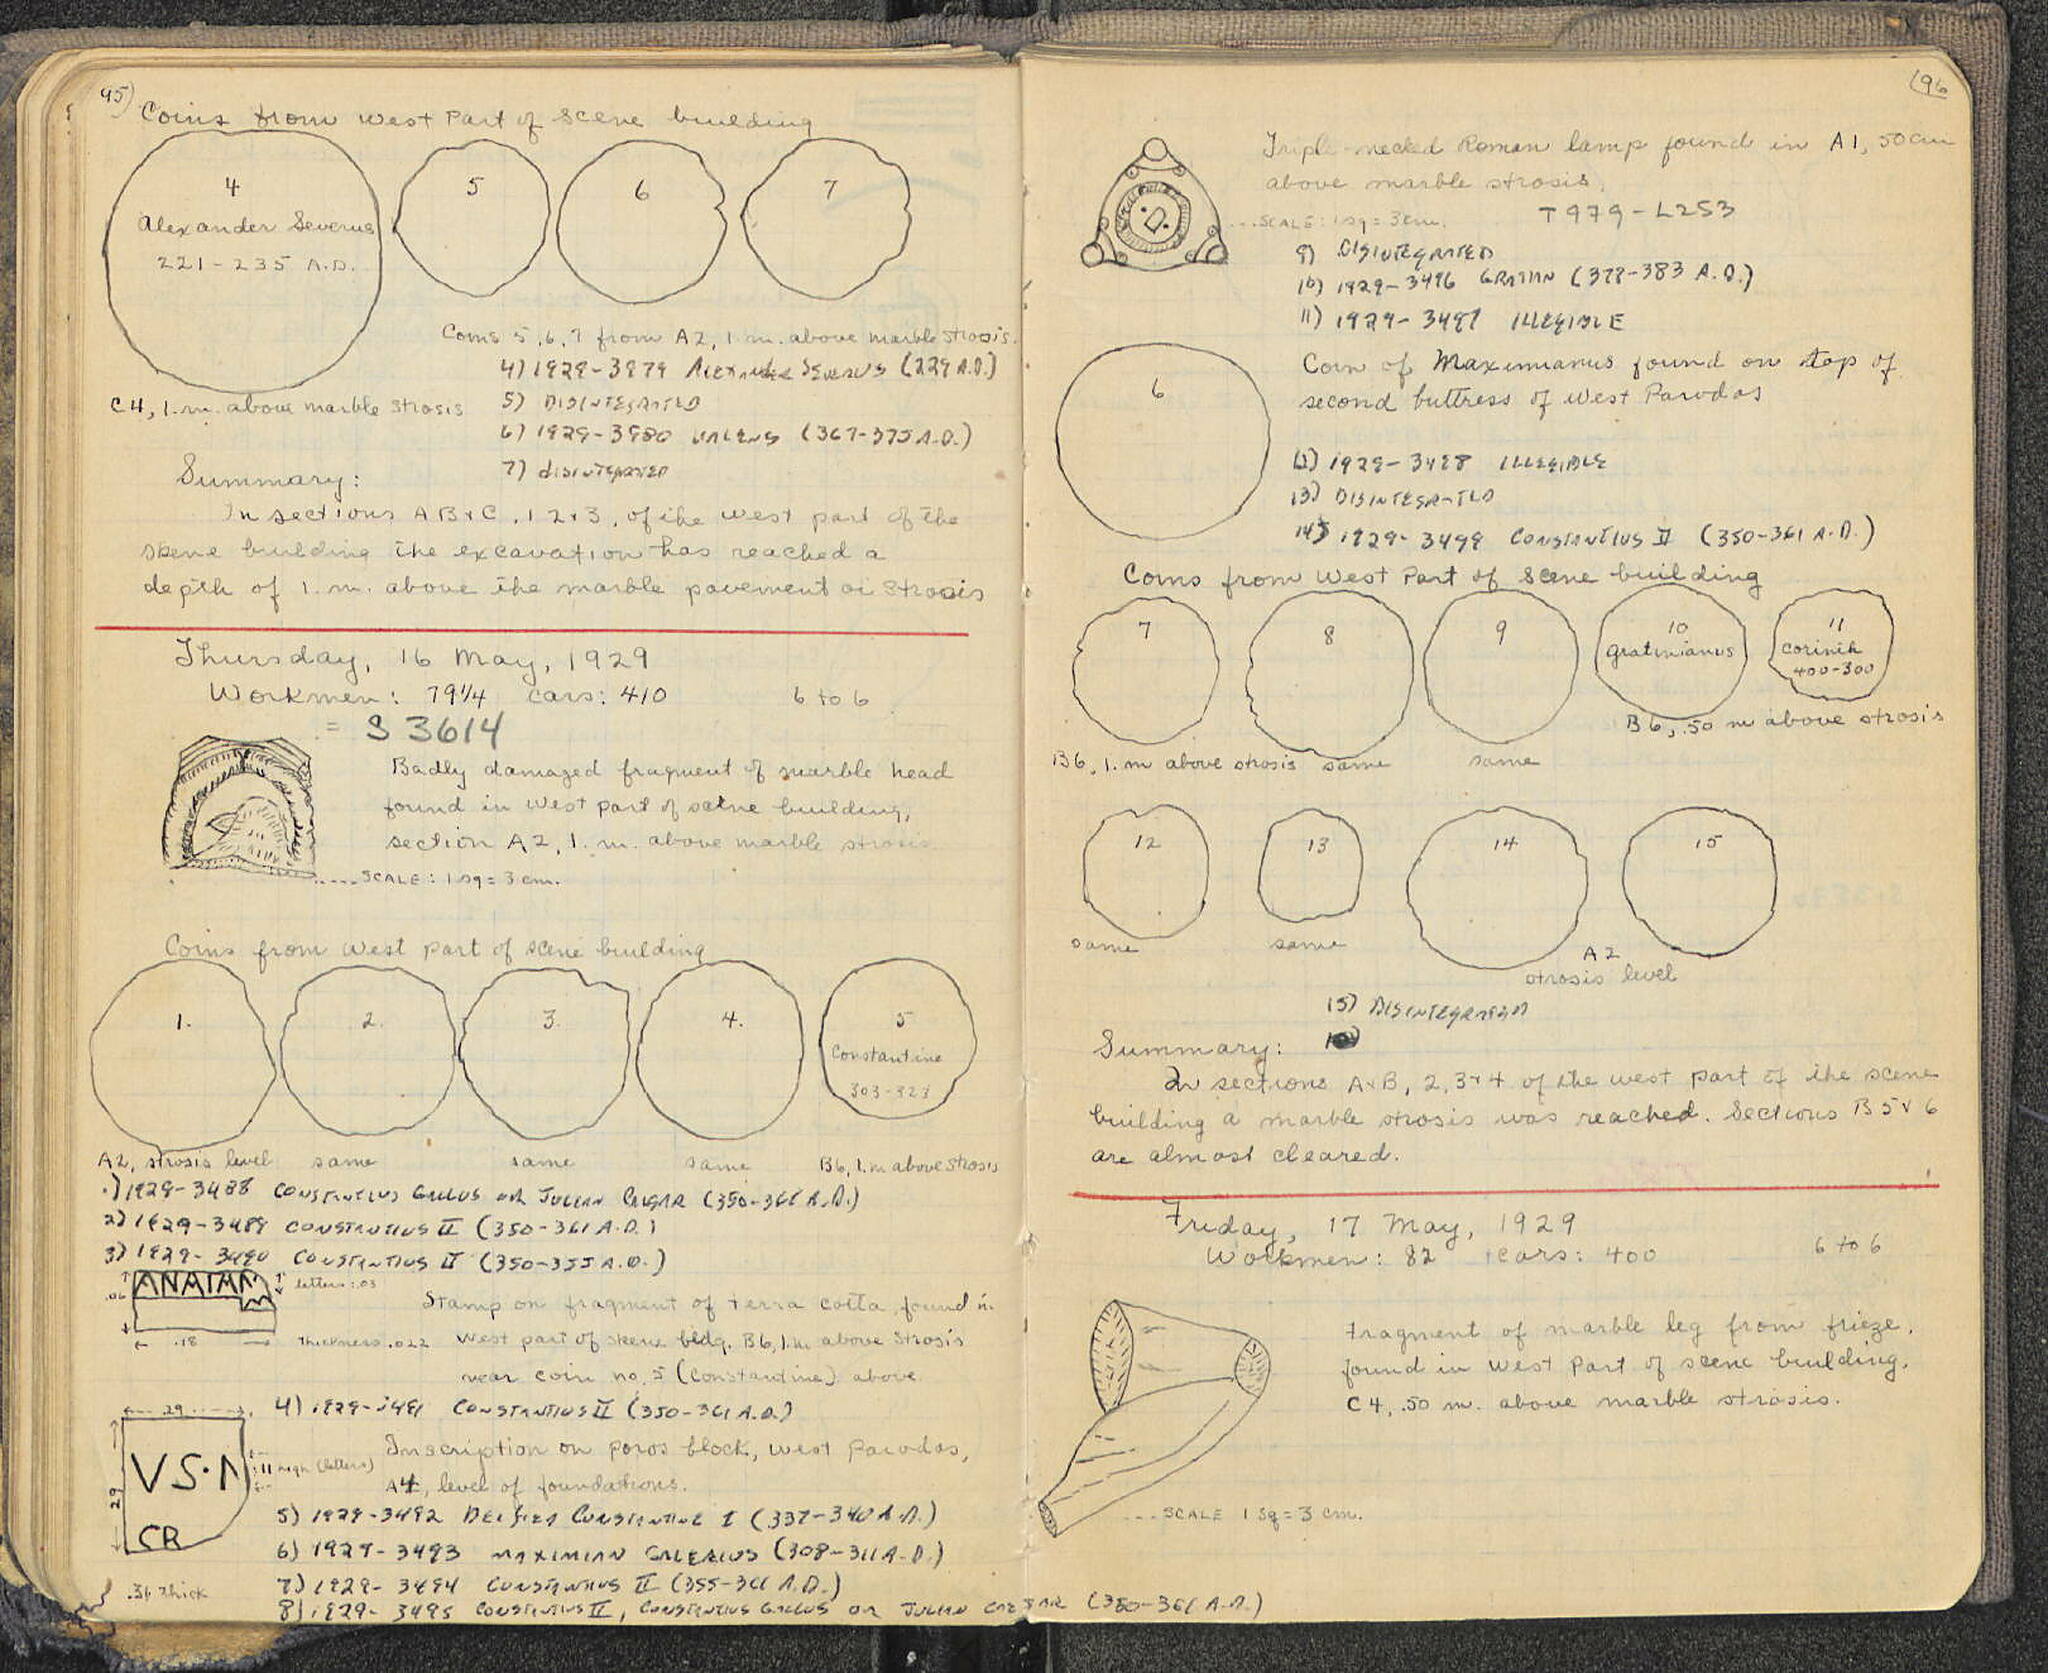 95)
Coins from west part of scene building
4
Alexander Severus
221-235 A.D.
5
6
7
Coins 5, 6, 7 from A2, 1. m. above marble strosis.
C4, 1. m. above marble strosis
4) 1929-3979 Alexander Severus (229 A.D.)
5) DISINTEGRATED
6) 1929-3980 VALENS (367-375 A.D.)
7) DISINTEGRATED
Summary:
In sections A B + C, 1 2 + 3, of the west part of the
skene building the excavation has reached a
depth of 1. m. above the marble pavement or strosis
Thursday, 16 May, 1929
Workmen: 79 1/4 cars: 410 6 to 6
= S 3614
Badly damaged fragment of marble head
found in west part of scene building,
section A2, 1. m. above marble strosis
....SCALE: 1 sq = 3 cm.
Coins from west part of scene building
1.
2.
3.
4.
5
Constantine
303-323
A2, strosis level same same same B6, 1. m above strosis
1) 1929-3488 CONSTANTIUS GALLUS OR JULIAN CAESAR (350-361 A.D.)
2) 1929-3489 CONSTANTIUS II (350-361 A.D.)
3) 1929-3490 CONSTANTIUS II (350-355 A.D.)
.06
letters .03
.18
Thickness .022
Stamp on fragment of terra cotta, found in
west part of skene bldg. B6, 1. m above strosis
near coin no. 5 (Constantine) above
4) 1929-3491 CONSTANTIUS II (350-361 A.D.)
.29
.29
VS·N
CR
.11 high (letters)
Inscription on poros block, west Parodos,
A4, level of foundations.
5) 1929-3492 DEIFIED CONSTANTINE I (337-340 A.D.)
6) 1929-3493 MAXIMIAN GALERIUS (308-311 A.D.)
7) 1929-3494 CONSTANTIUS II (355-361 A.D.)
8) 1929-3495 CONSTANTIUS II, CONSTANTIUS GALLUS OR JULIAN CAESAR (350-361 A.D.)
.36 thick
(96
Triple-necked Roman lamp found in A1, 50 cm
above marble strosis.
...SCALE: 1 sq = 3 cm.
T979-L253
9) DISINTEGRATED
10) 1929-3496 GRATIAN (378-383 A.D.)
11) 1929-3497 ILLEGIBLE
6
Coin of Maximianus found on top of
second buttress of West Parodos
12) 1929-3498 ILLEGIBLE
13) DISINTEGRATED
14) 1929-3499 CONSTANTIUS II (350-361 A.D.)
Coins from West Part of Scene building
7
8
9
10
Gratinianus
11
Corinth
400-300
B6, .50 m above strosis
B6, 1. m above strosis same same
12
13
14
15
same
same
A2
strosis level
15) DISINTEGRATED
Summary:
In sections A + B, 2, 3 + 4 of the west part of the scene
building a marble strosis was reached. Sections B 5 + 6
are almost cleared.
Friday, 17 May, 1929
Workmen: 82 cars: 400 6 to 6
Fragment of marble leg from frieze.
found in west part of scene building.
C4, .50 m. above marble strosis.
...SCALE 1 sq = 3 cm.